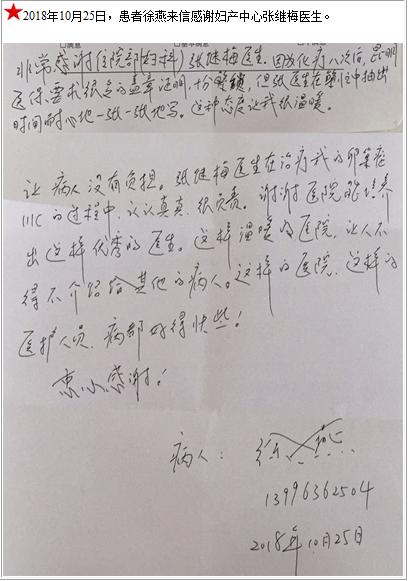 ★2018年10月25日，患者徐燕来信感谢妇产中心张继梅医生。
非常感谢住院部妇科张继梅医生。因为化疗八次后，昆明
医保要求很多的盖章证明，十分繁锁，但张医生在百忙中抽出
时间耐心地一张一张地写。这种态度让我很温暖。
让病人没有负担。张继梅医生在治疗我的卵巢癌
IIIC的过程中，认认真真，很负责。谢谢医院能培养
出这样优秀的医生。这样温暖的医院，让人不
得不介绍给其他的病人。这样的医院，这样的
医护人员，病都好得快些！
衷心感谢！
病人：徐
13996362504
2018年10月25日